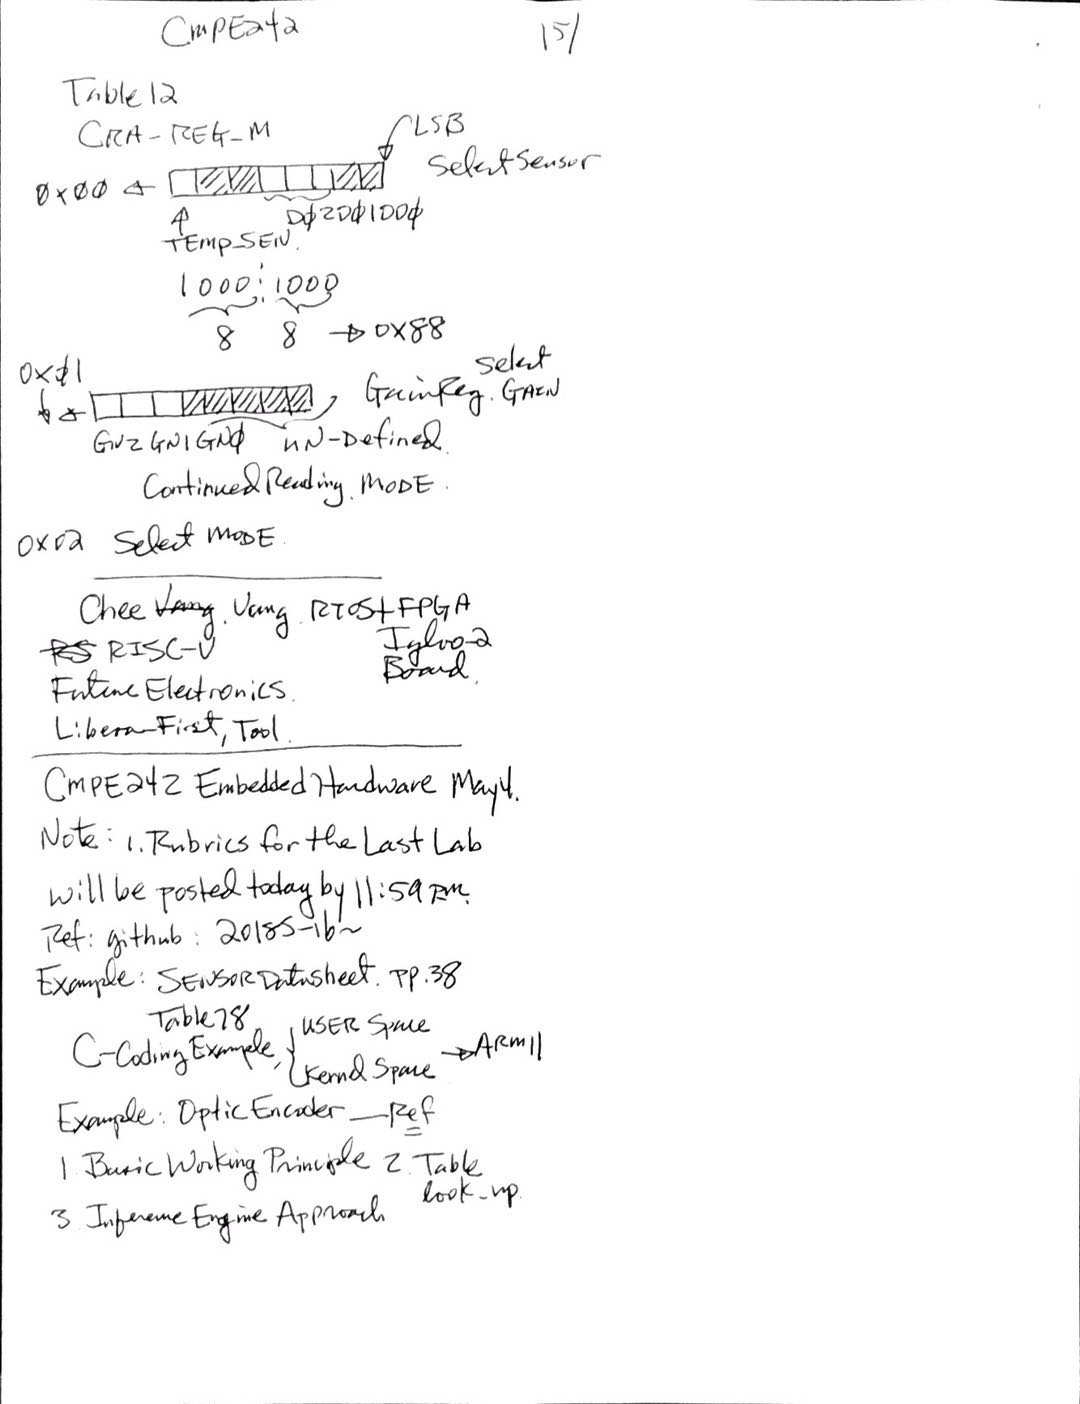 CmpE242 151
Table 12
CRA-REG-M
LSB
Select Sensor
0x00
D02D01D00
TEMP_SEN.
1000 1000
8 8 → 0x88
0x01
Select
Gain Reg. GAIN
GN2 GN1 GN0 UN-Defined
Continued Reading MODE.
0x02 Select MODE.
Chee Vang. Vang RTOS+FPGA
RS RISC-V Igloo-2
Board.
Future Electronics.
Libero-First, Tool.
CMPE242 Embedded Hardware May 4.
Note: 1. Rubrics for the Last Lab
will be posted today by 11:59 PM.
Ref: github: 2018S-16~
Example: SENSOR Datasheet. PP.38
Table 78
C-Coding Example, { USER Space
Kernel Space → ARM11
Example: Optic Encoder — Ref
1 Basic Working Principle 2. Table
look-up.
3 Inference Engine Approach